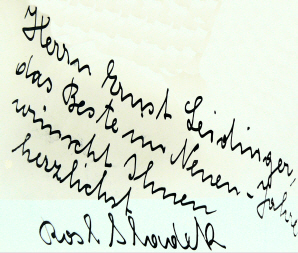 Herrn Ernst Leidinger,
das Beste im Neuen-Jahre
wünscht Ihnen
herzlichst